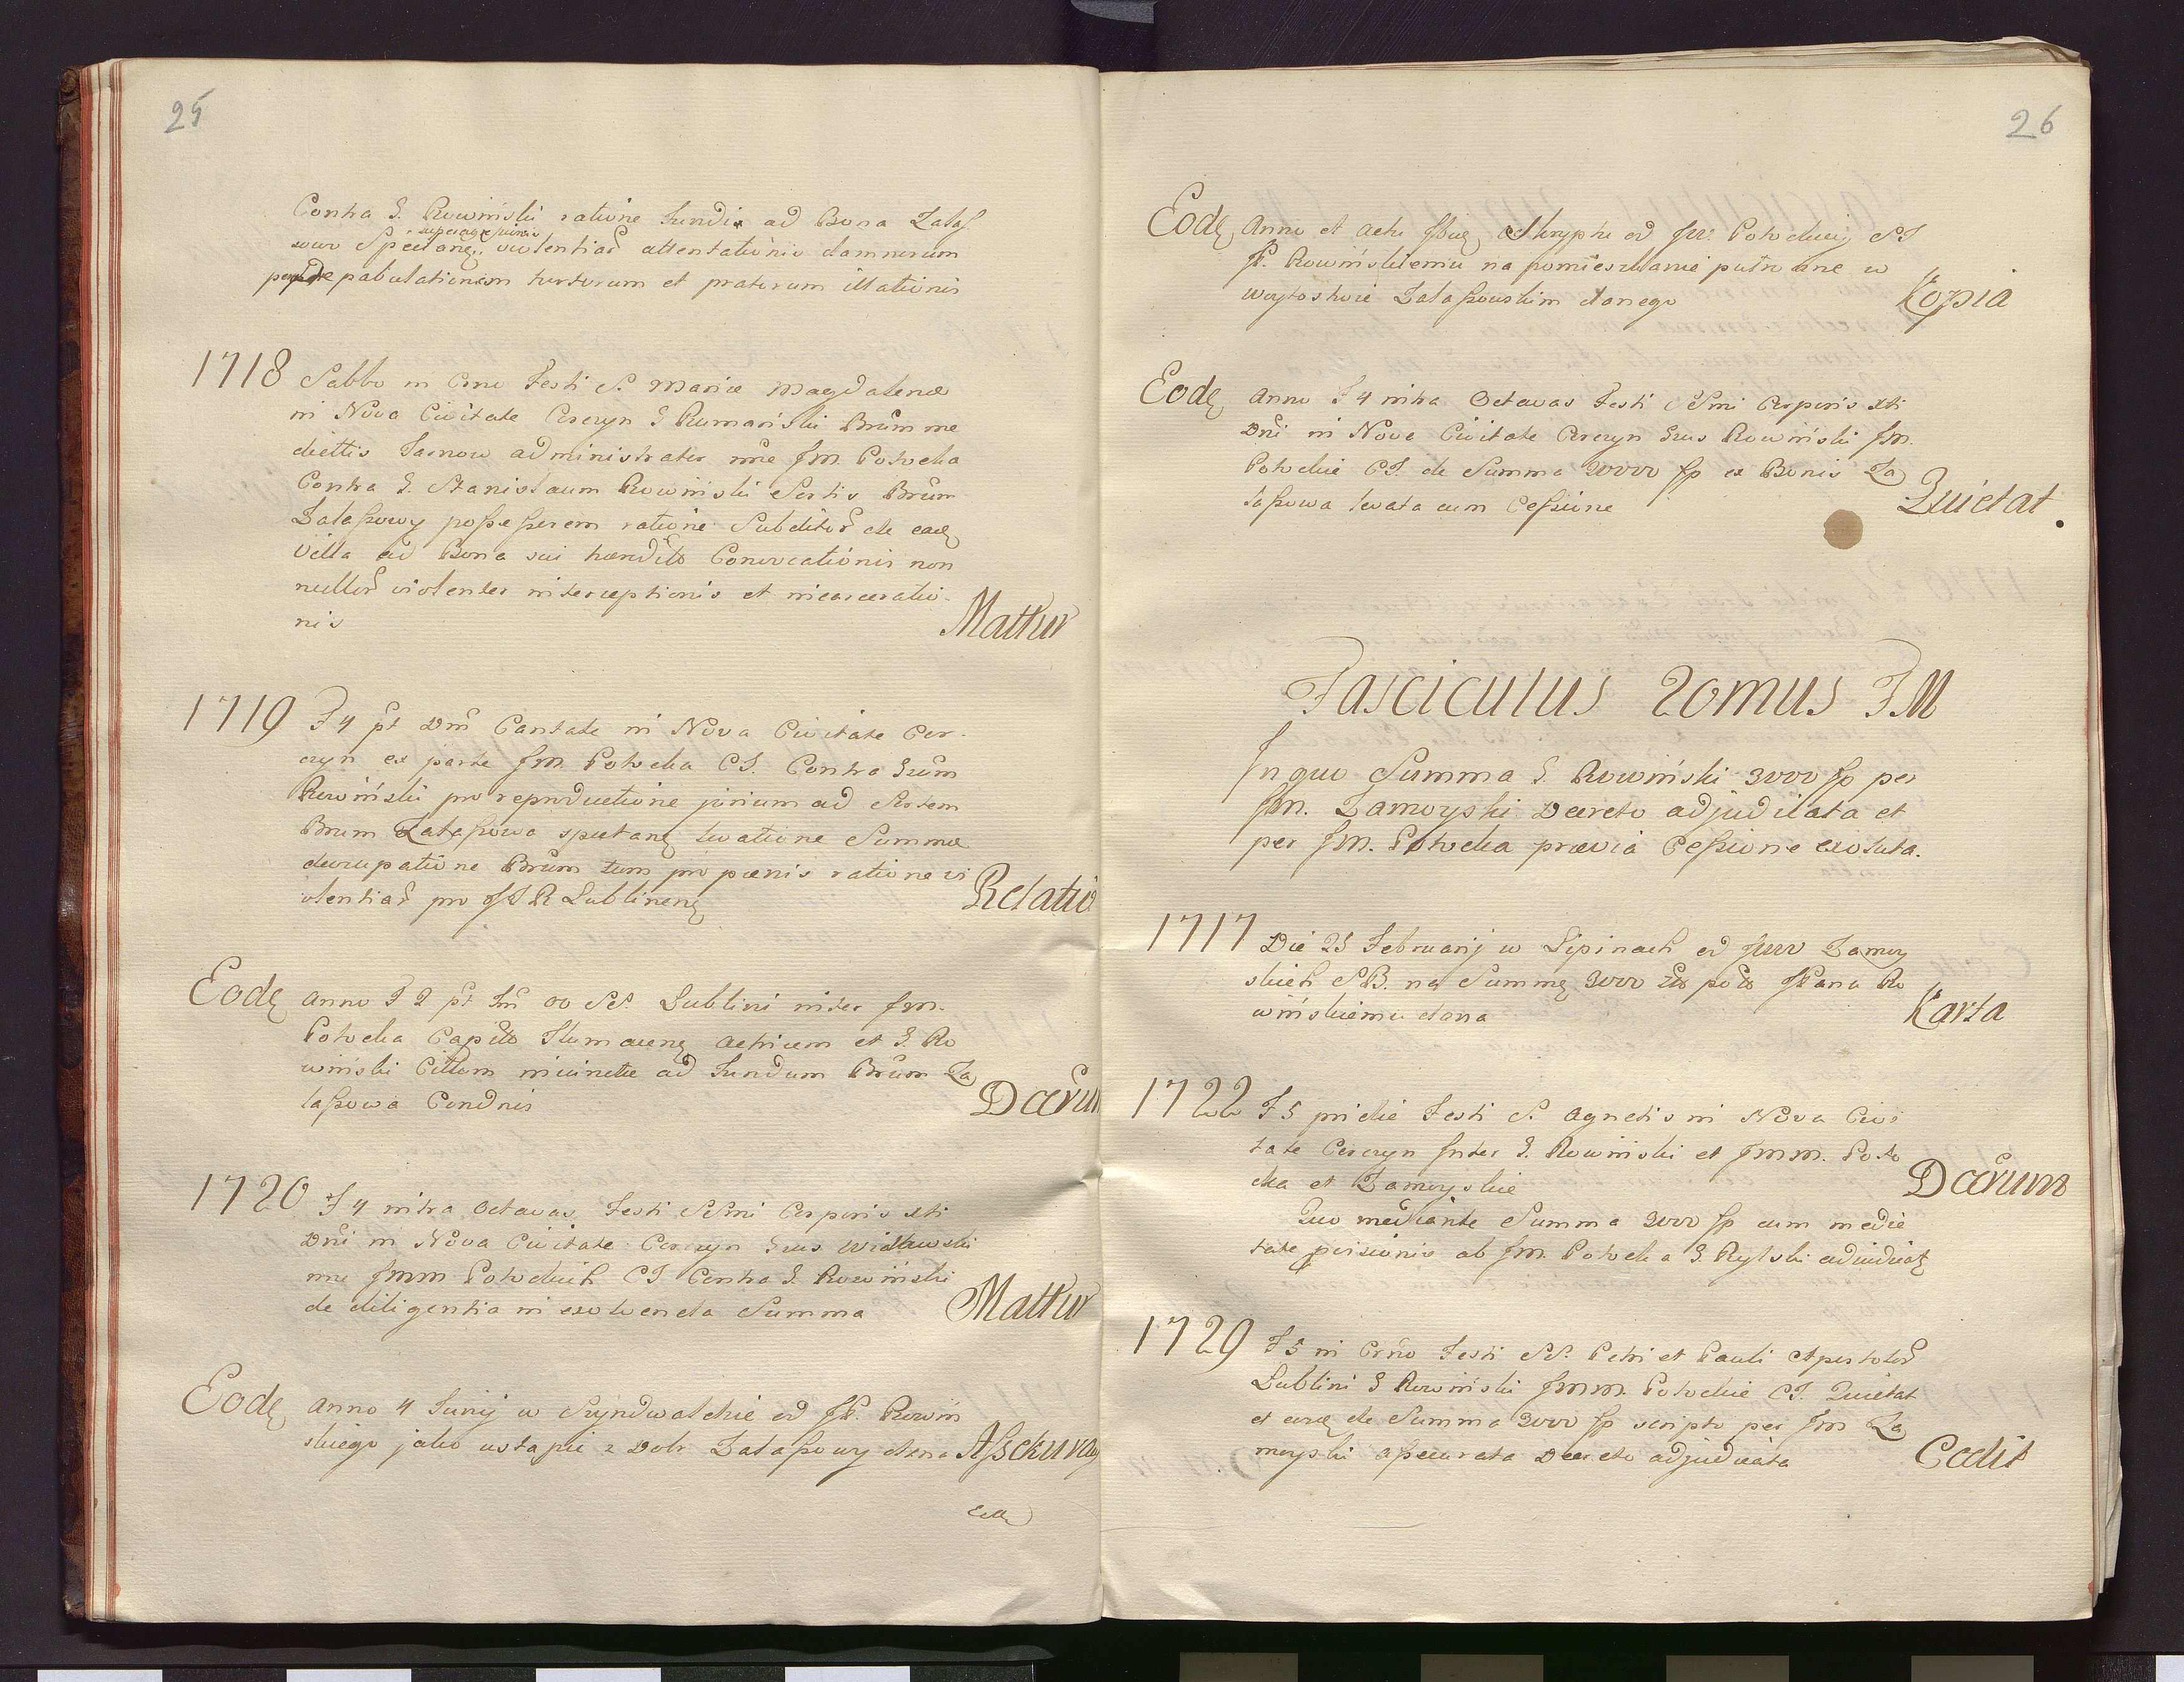 25
Contra G. Rowiński ratione fundi ad Bona Zalaſ
superagressionis
violentiar̃ attentationis damnorum
depabulationem hortorum et pratorum illationis
1718 Sabbo in Crno Festi S. Mariæ Magdalenæ
in Nova Civitate Corczyn G Rumański Brum me
diettis Tarnow administrator nne Jm. Potocka
Contra G. Stanislaum Rowiński Sortis Brum
Zalaſsowy poſseſsorem ratione Subditor̃ de eadę
Villa ad Bona sui hæredito Convocationis non
nullor̃ violenter interceptionis et incarceratio-
nis Mattur
1719 F 4 pt Dnm Cantate in Nova Civitate Cor-
czyn ex parte Jm. Potocka CT. Contra Grum
Rowiński pro reproductione jurium ad Sortem
Brum Zalaſsowa spectanę levatione Summæ
deoccupatione Brum tum pro pœnis ratione vi
olentiar̃ pro JTR Lublinenę Relatio
Eodę anno F 2 pt Fm OO SS. Lublini inter Jm.
Potocka Capito Tłumacenę actricem et G. Ro
wiński Cittum ad fundum Brum Za
laſsowa Condnis Dcērum
1720 F 4 intra octavas Festi SSmi Corporis Xti
Dni in Nova Civitate Corczyn Grus Widławski
nne Jmm Potockich CT Contra G. Rowiński
de diligentia in exolvenda Summa Mattur
Eodę anno 4 Junij w Szyndwałdzie od JP. Rowiń
skiego jako ustąpić z Dobr Zalaſsowy dana Aſsekuraę
Eodę
26
Eodę anno et actu Ibidę Skryptu od JW. Potockiej ST
JP. Rowińskiemu na pomieszkanie puł roczne w
woytostwie Zalaſsowskim danego Kopia
Eodę anno F 4 intra Octavas Festi SSmi Corporis Xti
Dni in Nova Civitate Corczyn Grus Rowiński Jm.
Potockie CT. de Summa 20000 fp ex Bonis Za
laſsowa levata cum Ceſsione Quietat.
Fasciculus 2dmus F.M
In quo Summa G. Rowiński 3000 fp per
Jm. Zamoyski Decreto adjudicata et
per Jm. Potocka prævia Ceſsione exoluta.
1717 Die 25 Februarij w Lipinach od JWW Zamoy
skich SB. na Summę 3000 zło pols JPanu Ro
wińskiemu dana Karta
1722 F 5 pridie Festi S. Agnetis in Nova Civi
tate Corczyn Inter G. Rowiński et Jmm. Poto
cka et Zamoyskie Dcērum
Quo mediante Summa 3000 fp cum medie
tate provisionis ab Jm. Potocka G. Rylski adiudicatę
1729 F 5 in Crño Festi SS. Petri et Pauli Apostolor̃
Lublini G Rowiński Jmm. Potockie CT. Quietat
et earę de Summa 3000 fp scripto per Jm Za
moyski aſsecurata Decreto adjudicata Cedit